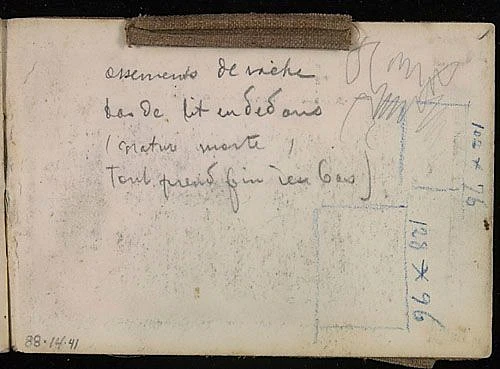 ossements de vache
bas de lit en dedans
(nature morte,
Tout prend fin ici bas)
102 x 76
128 x 96
88·14·41